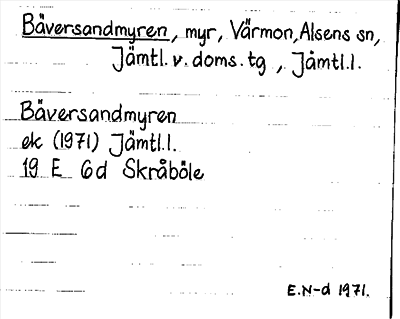 Bäversandmyren, myr, Värmon, Alsens sn,
Jämtl. v. doms. tg, Jämtl. l.
Bäversandmyren
ek (1971) Jämtl. l.
19 E 6d Skråböle
E.N-d 1971.